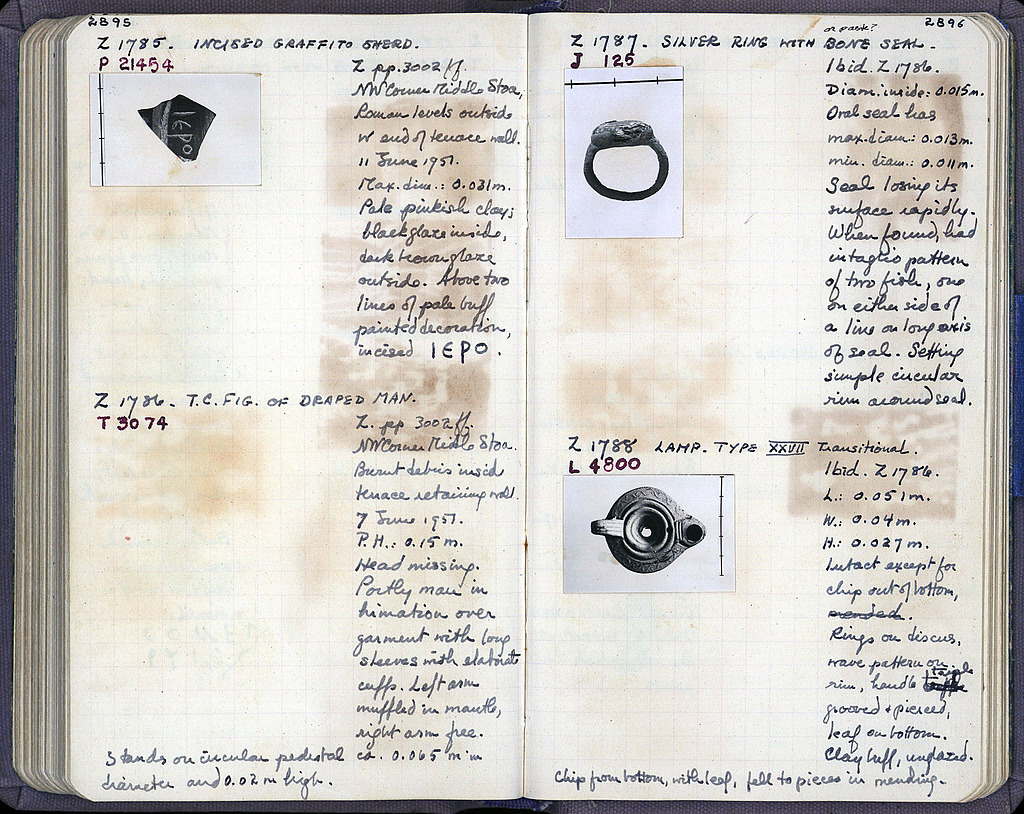 2895
Z 1785. INCISED GRAFFITO SHERD.
P 21454
Z pp. 3002 ff.
NW Corner Middle Stoa,
Roman levels outside
W end of terrace wall.
11 June 1951.
Max. dim.: 0.031 m.
Pale pinkish clay;
black glaze inside,
dark brown glaze
outside. Above two
lines of pale buff
painted decoration,
incised ΙΕΡΟ.
ΙΕΡΟ
Z 1786. T.C. FIG. OF DRAPED MAN.
T 3074
Z. pp 3002 ff.
NW Corner Middle Stoa.
Burnt debris inside
terrace retaining wall.
7 June 1951.
P.H.: 0.15 m.
Head missing.
Portly man in
himation over
garment with long
sleeves with elaborate
cuffs. Left arm
muffled in mantle,
right arm free.
Stands on circular pedestal ca. 0.065 m in
diameter and 0.02 m high.
2896
or paste?
Z 1787. SILVER RING WITH BONE SEAL.
J 125
Ibid. Z 1786.
Diam. inside: 0.015 m.
Oval seal has
max. diam.: 0.013 m.
min. diam.: 0.011 m.
Seal losing its
surface rapidly.
When found, had
intaglio pattern
of two fish, one
on either side of
a line on long axis
of seal. Setting
simple circular
rim around seal.
Z 1788 LAMP. TYPE XXVII Transitional.
L 4800
Ibid. Z 1786.
L.: 0.051 m.
W.: 0.04 m.
H.: 0.027 m.
Intact except for
chip out of bottom,
mended.
Rings on discus,
wave pattern on
triple
rim, handle
grooved & pierced,
leaf on bottom.
Clay buff, unglazed.
Chip from bottom, with leaf, fell to pieces in mending.